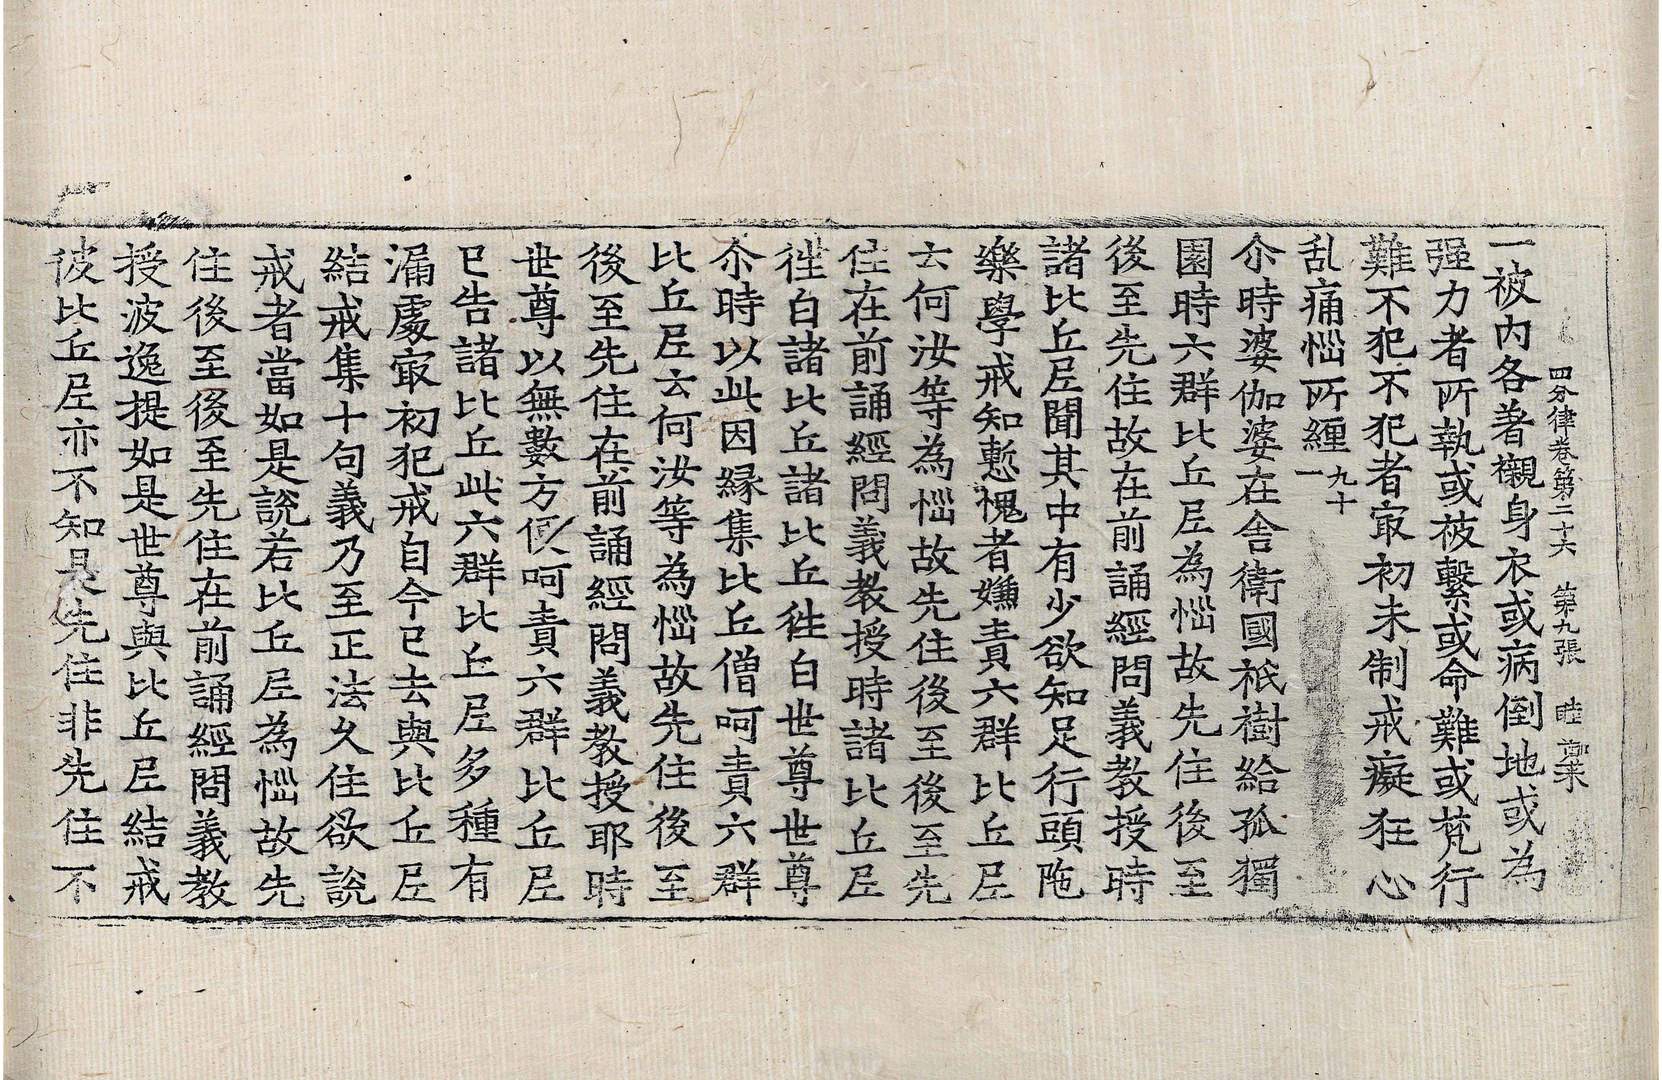 四分律卷第二十六 第九張 睦
一被內各著襯身衣或病倒地或為
强力者所執或被繫或命難或梵行
難不犯不犯者㝡初未制戒癡狂心
乱痛惱所纏九十一
尒時婆伽婆在舎衛國祇樹給孤獨
園時六群比丘尼為惱故先住後至
後至先住故在前誦經問義教授時
諸比丘尼聞其中有少欲知足行頭陁
樂學戒知慙愧者嫌責六群比丘尼
云何汝等為惱故先住後至後至先
住在前誦經問義教授時諸比丘尼
徃白諸比丘諸比丘徃白世尊世尊
尒時以此因緣集比丘僧呵責六群
比丘尼云何汝等為惱故先住後至
後至先住在前誦經問義教授耶時
世尊以無數方便呵責六群比丘尼
已告諸比丘此六群比丘尼多種有
漏處㝡初犯戒自今已去與比丘尼
結戒集十句義乃至正法久住欲說
戒者當如是說若比丘尼為惱故先
住後至後至先住在前誦經問義教
授波逸提如是世尊與比丘尼結戒
彼比丘尼亦不知是先住非先住不